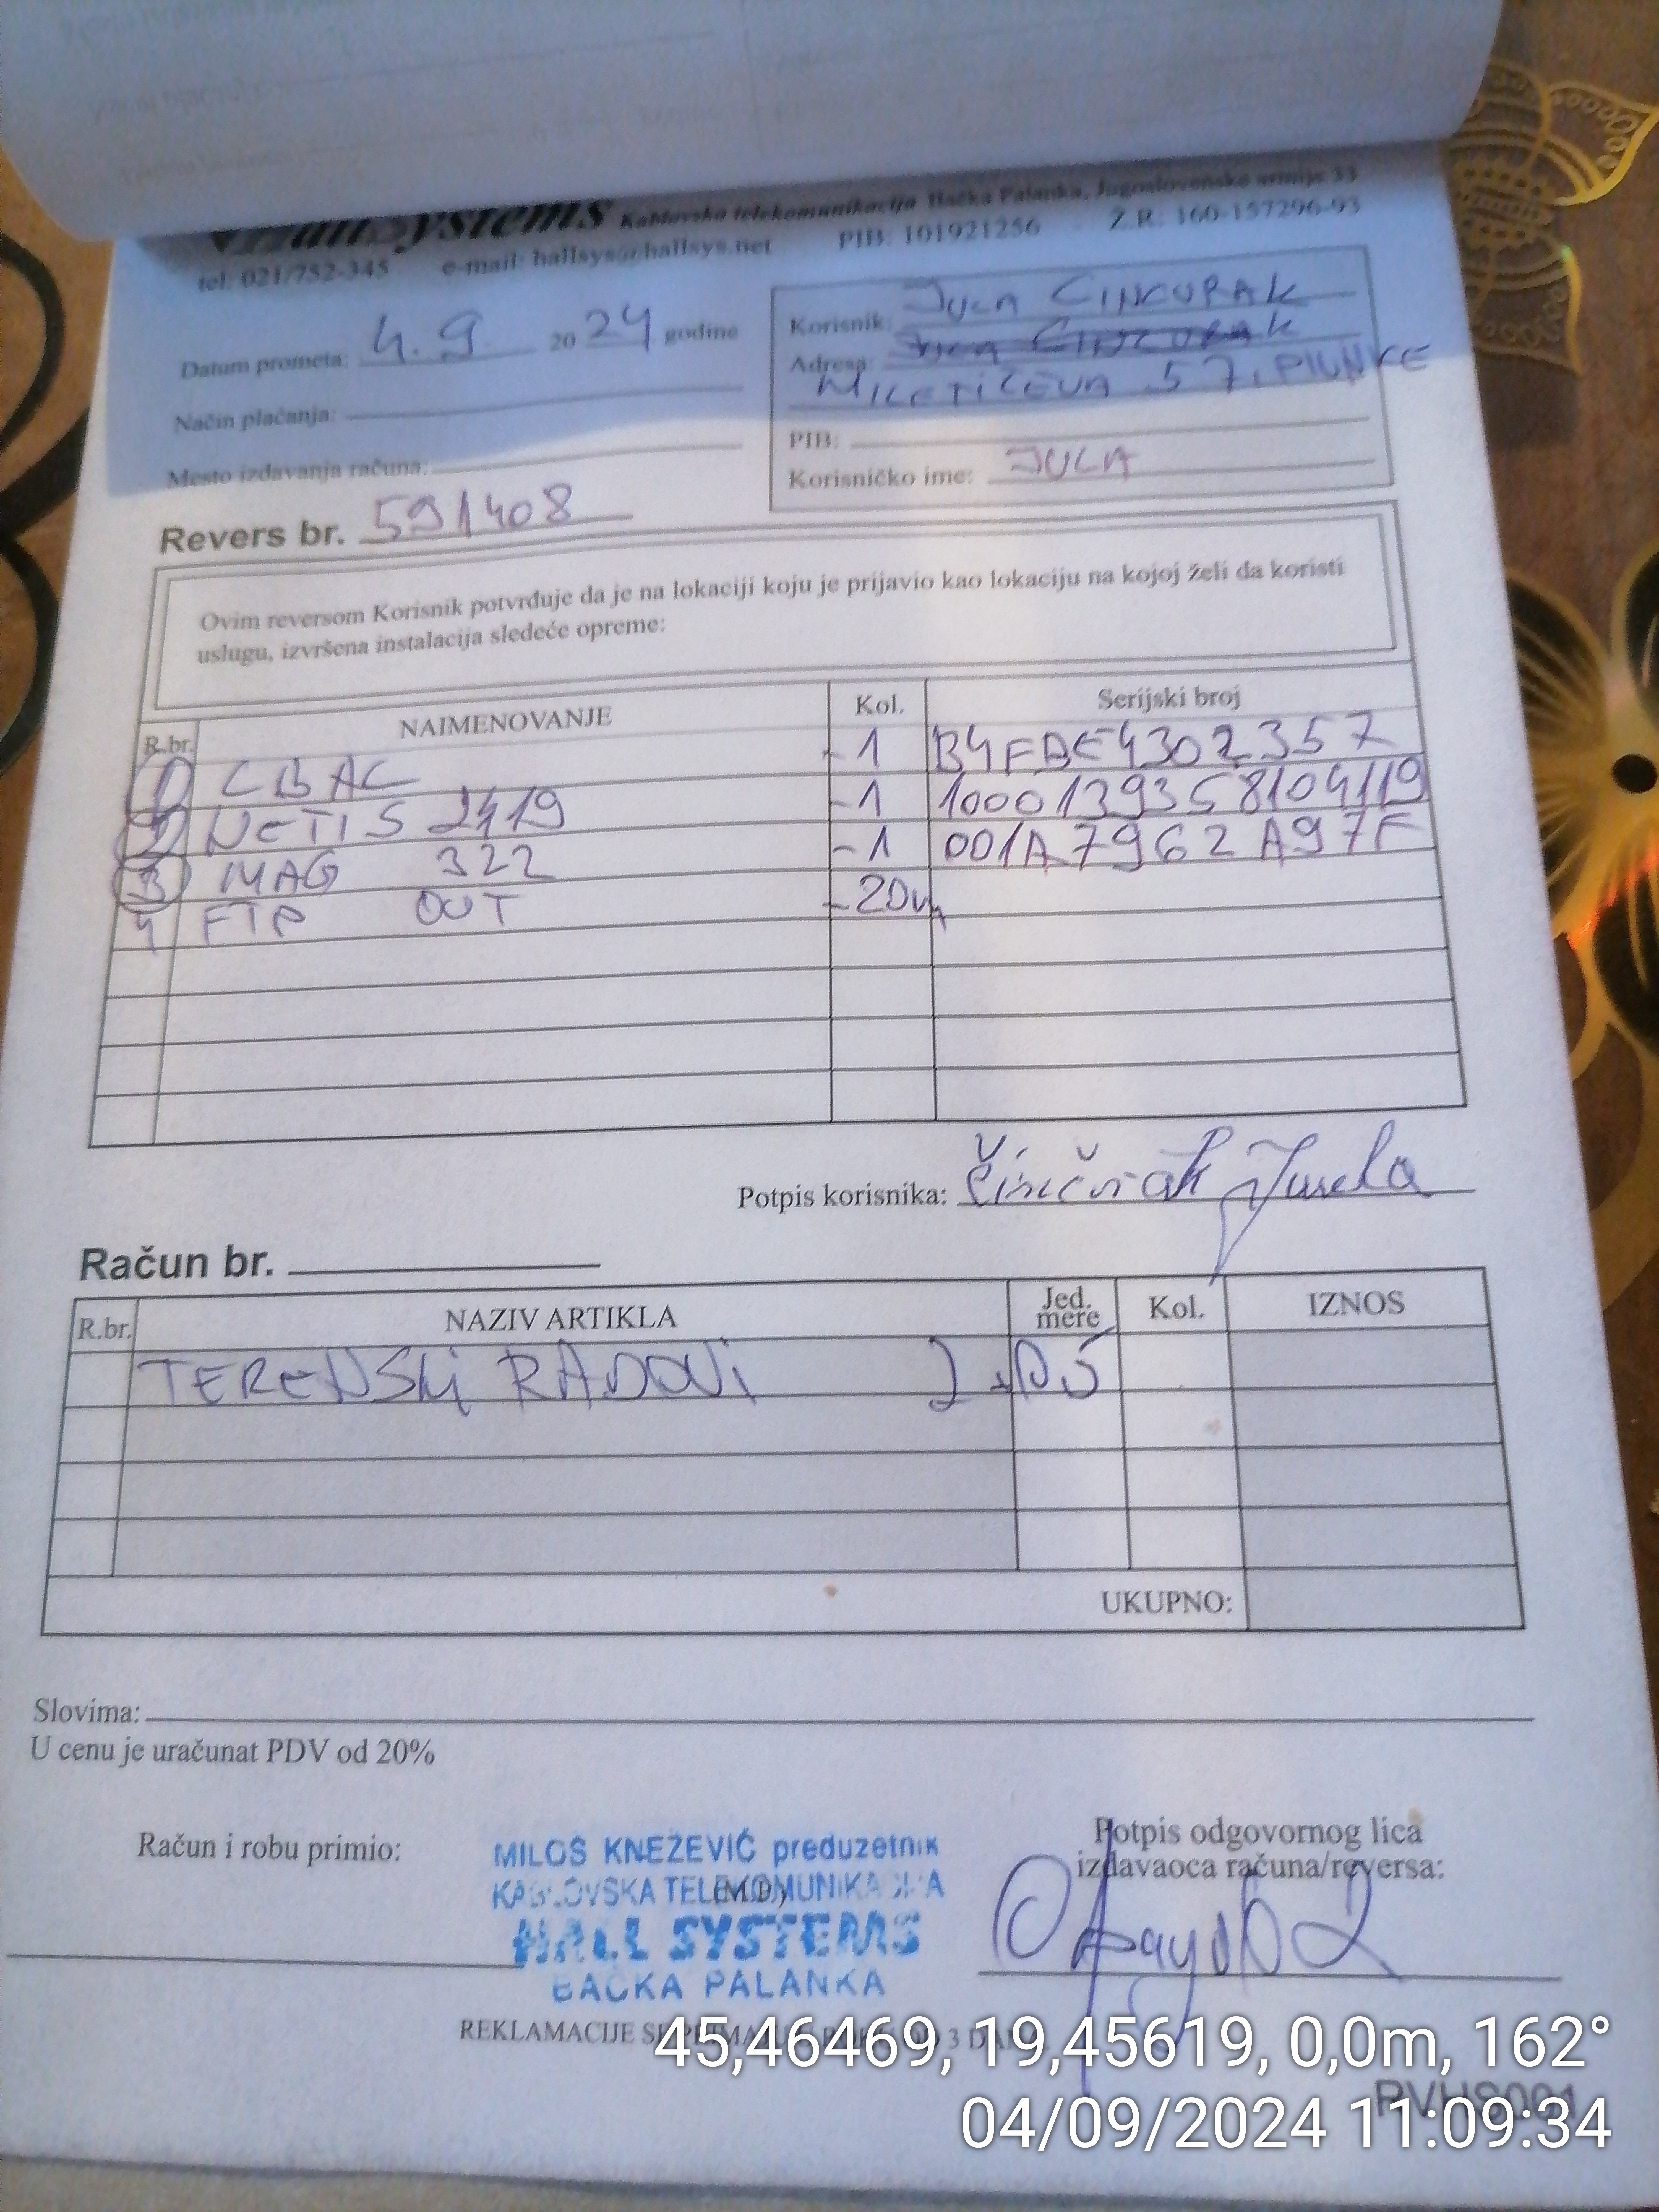 Hall Systems Kablovska telekomunikacija Bačka Palanka, Jugoslovenske armije 33
tel: 021/752-345 e-mail: hallsys@hallsys.net PIB: 101921256 Ž.R: 160-157296-93
Datum prometa: 4.9. 20 24 godine
Način plaćanja:
Mesto izdavanja računa:
Korisnik: JULA CINCURAK
Adresa:
MILETIĆEVA 57,
PIB:
Korisničko ime: JULA
Revers br. 591408
Ovim reversom Korisnik potvrđuje da je na lokaciji koju je prijavio kao lokaciju na kojoj želi da koristi
uslugu, izvršena instalacija sledeće opreme:
R.br. NAIMENOVANJE Kol. Serijski broj
1 CBAC -1 B4FBE4302357
2 NETIS 2419 -1 1000139358104119
3 MAG 322 -1 001A7962A97F
4 FTP OUT -20m
Potpis korisnika: Činčurak Jula
Račun br.
R.br. NAZIV ARTIKLA Jed. mere Kol. IZNOS
TERENSKI RADOVI
UKUPNO:
Slovima:
U cenu je uračunat PDV od 20%
Račun i robu primio:
MILOŠ KNEŽEVIĆ preduzetnik
KABLOVSKA TELEKOMUNIKACIJA
(M.P.)
HALL SYSTEMS
BAČKA PALANKA
Potpis odgovornog lica
izdavaoca računa/reversa:
REKLAMACIJE SE PRIMAJU
45,46469, 19,45619, 0,0m, 162°
PVHS001
04/09/2024 11:09:34